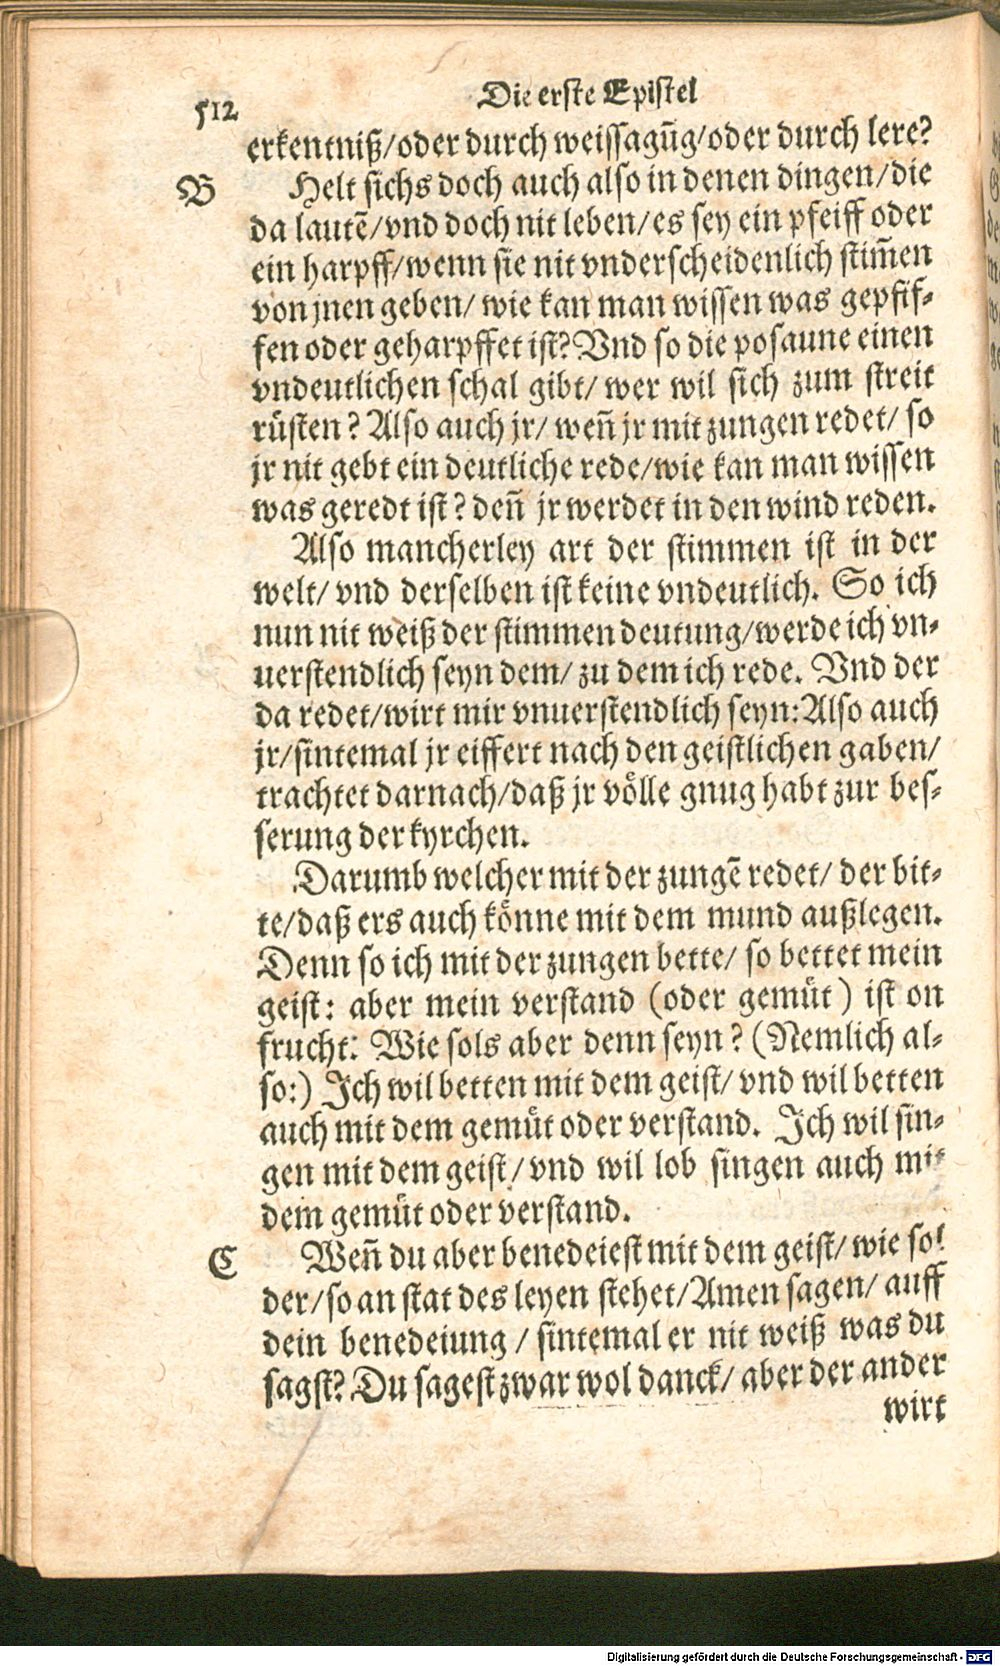 512
Die erste Epistel
erkentniß/oder durch weissagūg/oder durch lere?
B
Helt sichs doch auch also in denen dingen/die
da lautē/vnd doch nit leben/es sey ein pfeiff oder
ein harpff/wenn sie nit vnderscheidenlich stim̄en
von jnen geben/ wie kan man wissen was gepfif-
fen oder geharpffet ist? Vnd so die posaune einen
vndeutlichen schal gibt/ wer wil sich zum streit
rüsten? Also auch jr/ weñ jr mit zungen redet/ so
jr nit gebt ein deutliche rede/wie kan man wissen
was geredt ist? deñ jr werdet in den wind reden.
Also mancherley art der stimmen ist in der
welt/ vnd derselben ist keine vndeutlich. So ich
nun nit weiß der stimmen deutung/werde ich vn-
uerstendlich seyn dem/ zu dem ich rede. Vnd der
da redet/wirt mir vnuerstendlich seyn: Also auch
jr/sintemal jr eiffert nach den geistlichen gaben/
trachtet darnach/daß jr völle gnug habt zur bes-
serung der kyrchen.
Darumb welcher mit der zungē redet/ der bit-
te/daß ers auch könne mit dem mund außlegen.
Denn so ich mit der zungen bette/ so bettet mein
geist: aber mein verstand (oder gemüt) ist on
frucht: Wie sols aber denn seyn? (Nemlich al-
so:) Ich wil betten mit dem geist/ vnd wil betten
auch mit dem gemüt oder verstand. Ich wil sin-
gen mit dem geist/ vnd wil lob singen auch mit
dem gemüt oder verstand.
C
Weñ du aber benedeiest mit dem geist/ wie sol
der/so an stat des leyen stehet/Amen sagen/ auff
dein benedeiung / sintemal er nit weiß was du
sagst? Du sagest zwar wol danck/ aber der ander
wirt
Digitalisierung gefördert durch die Deutsche Forschungsgemeinschaft - DFG